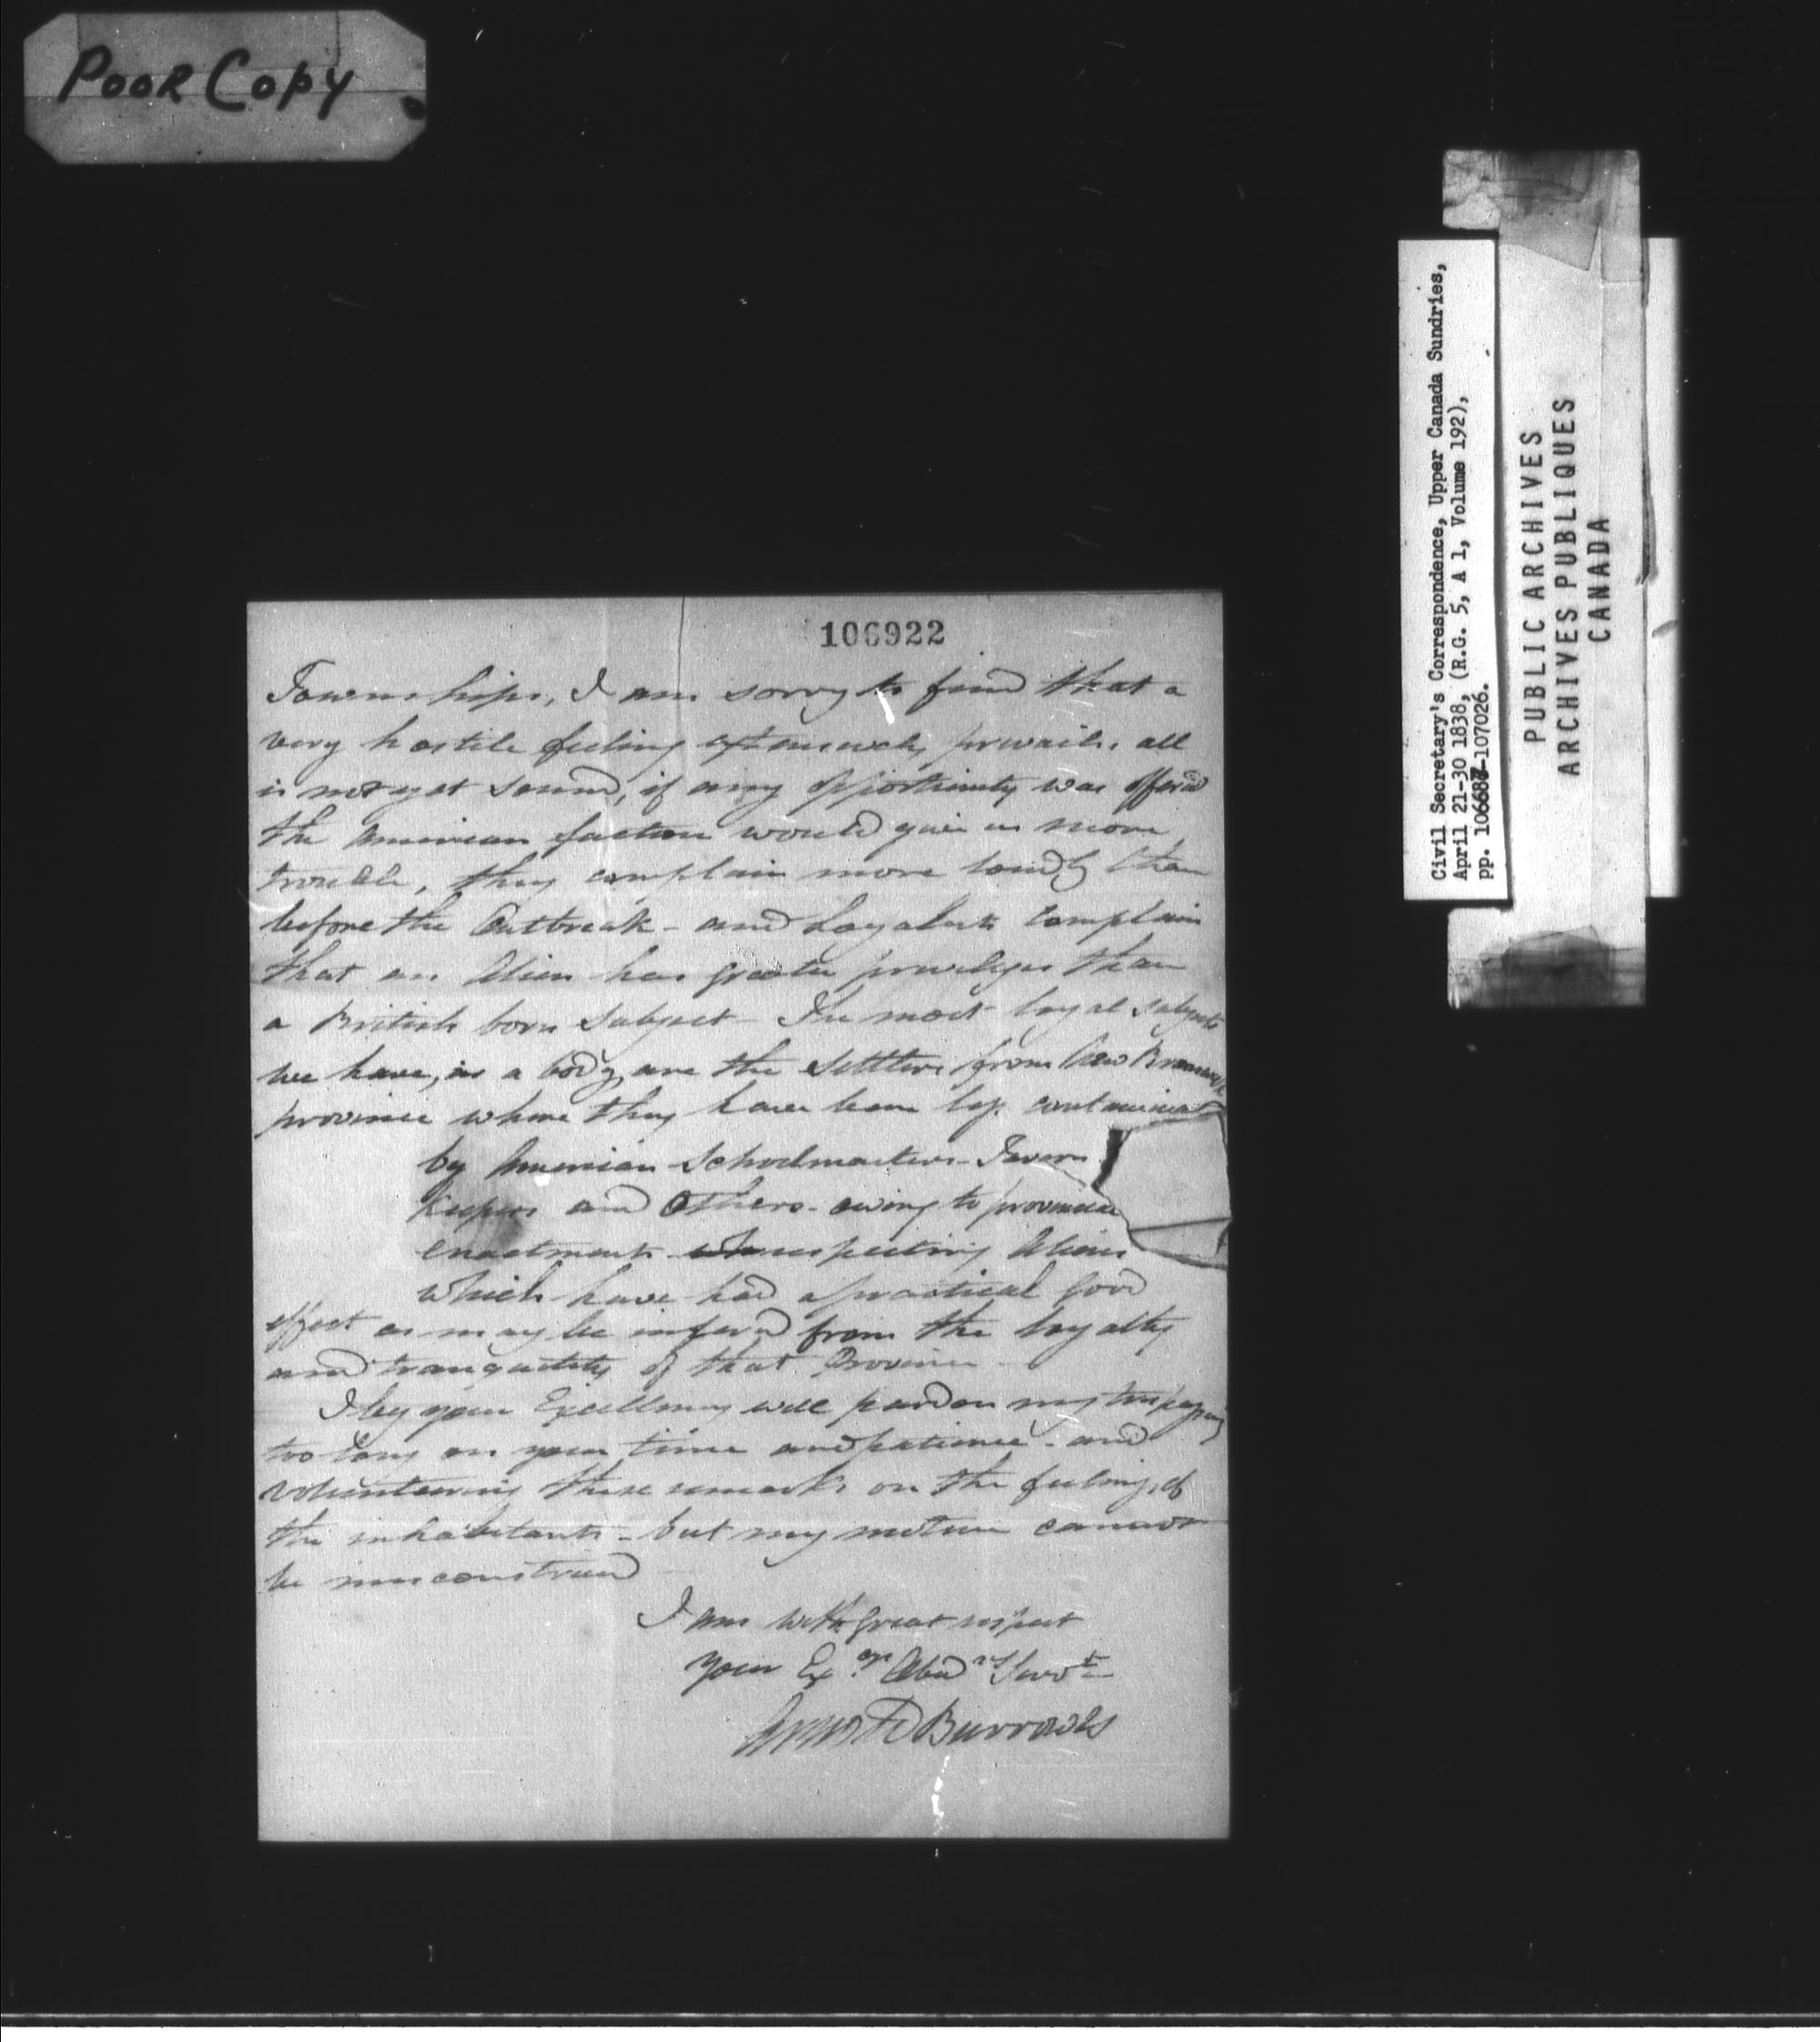 POOR COPY
106922
Townships, I am sorry to find that a
very hostile feeling extensively prevails, all
is not yet sound, if any opportunity was offered
the American faction would give us more
trouble, they complain more loudly than
before the Outbreak - and Loyalists complain
that an Alien has greater privileges than
a British born Subject - The most loyal subjects
we have, as a body, are the Settlers from New Brunswick
province where they have been less contaminated
by American Schoolmasters - Tavern
Keepers and Others - owing to provincial
enactments respecting Aliens
which have had a practical good
effect as may be inferred from the loyalty
and tranquility of that Province -
I beg your Excellency will pardon my trespassing
too long on your time and patience - and
volunteering these remarks on the feelings of
the inhabitants - but my motive cannot
be misconstrued
I am with great respect
Your Excy. Obed. Servt
Burrows
Civil Secretary's Correspondence, Upper Canada Sundries,
April 21-30 1838, (R.G. 5, A 1, Volume 192),
pp. 106687-107026.
PUBLIC ARCHIVES
ARCHIVES PUBLIQUES
CANADA